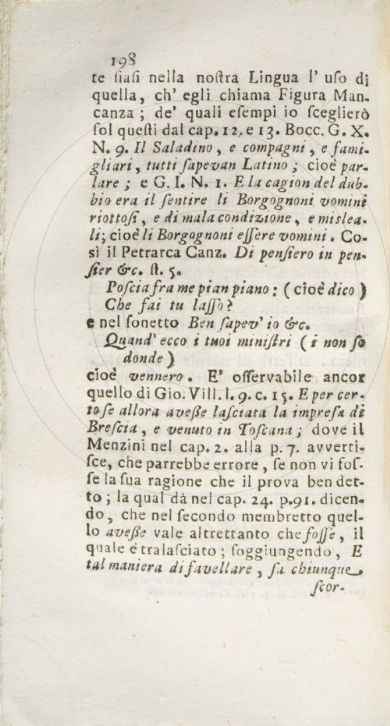 198
te ſiaſi nella noſtra Lingua l' uſo di
quella, ch' egli chiama Figura Man-
canza; de' quali eſempi io ſceglierò
ſol queſti dal cap. 12. e 13. Bocc. G. X.
N. 9. Il Saladino, e compagni, e fami-
gliari, tutti ſapevan Latino; cioè par-
lare; e G. I. N. 1. E la cagion del dub-
bio era il ſentire li Borgognoni vomini
riottoſi, e di mala condizione, e mislea-
li; cioè li Borgognoni eſſere vomini. Co-
sì il Petrarca Canz. Di penſiero in pen-
ſier &c. ſt. 5.
Poſcia fra me pian piano: (cioè dico)
Che fai tu laſſo?
e nel ſonetto Ben ſapev' io &c.
Quand' ecco i tuoi miniſtri (i non ſo
donde)
cioè vennero. E' oſſervabile ancor
quello di Gio. Vill. l. 9. c. 15. E per cer-
to ſe allora aveße laſciata la impreſa di
Breſcia, e venuto in Toſcana; dove il
Menzini nel cap. 2. alla p. 7. avverti-
ſce, che parrebbe errore, ſe non vi foſ-
ſe la ſua ragione che il prova ben det-
to; la qual dà nel cap. 24. p.91. dicen-
do, che nel ſecondo membretto quel-
lo aveße vale altrettanto che foſſe, il
quale è tralaſciato; ſoggiungendo, E
tal maniera di favellare, ſa chiunque
ſcor-